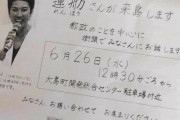 蓮舫さんが来島します
れんほう
都政のことを中心に
街頭でみなさんにお話します
6月26日(水)
12時30分ごろから
大島町開発総合センター駐車場付近
みなさん、お誘い合わせて